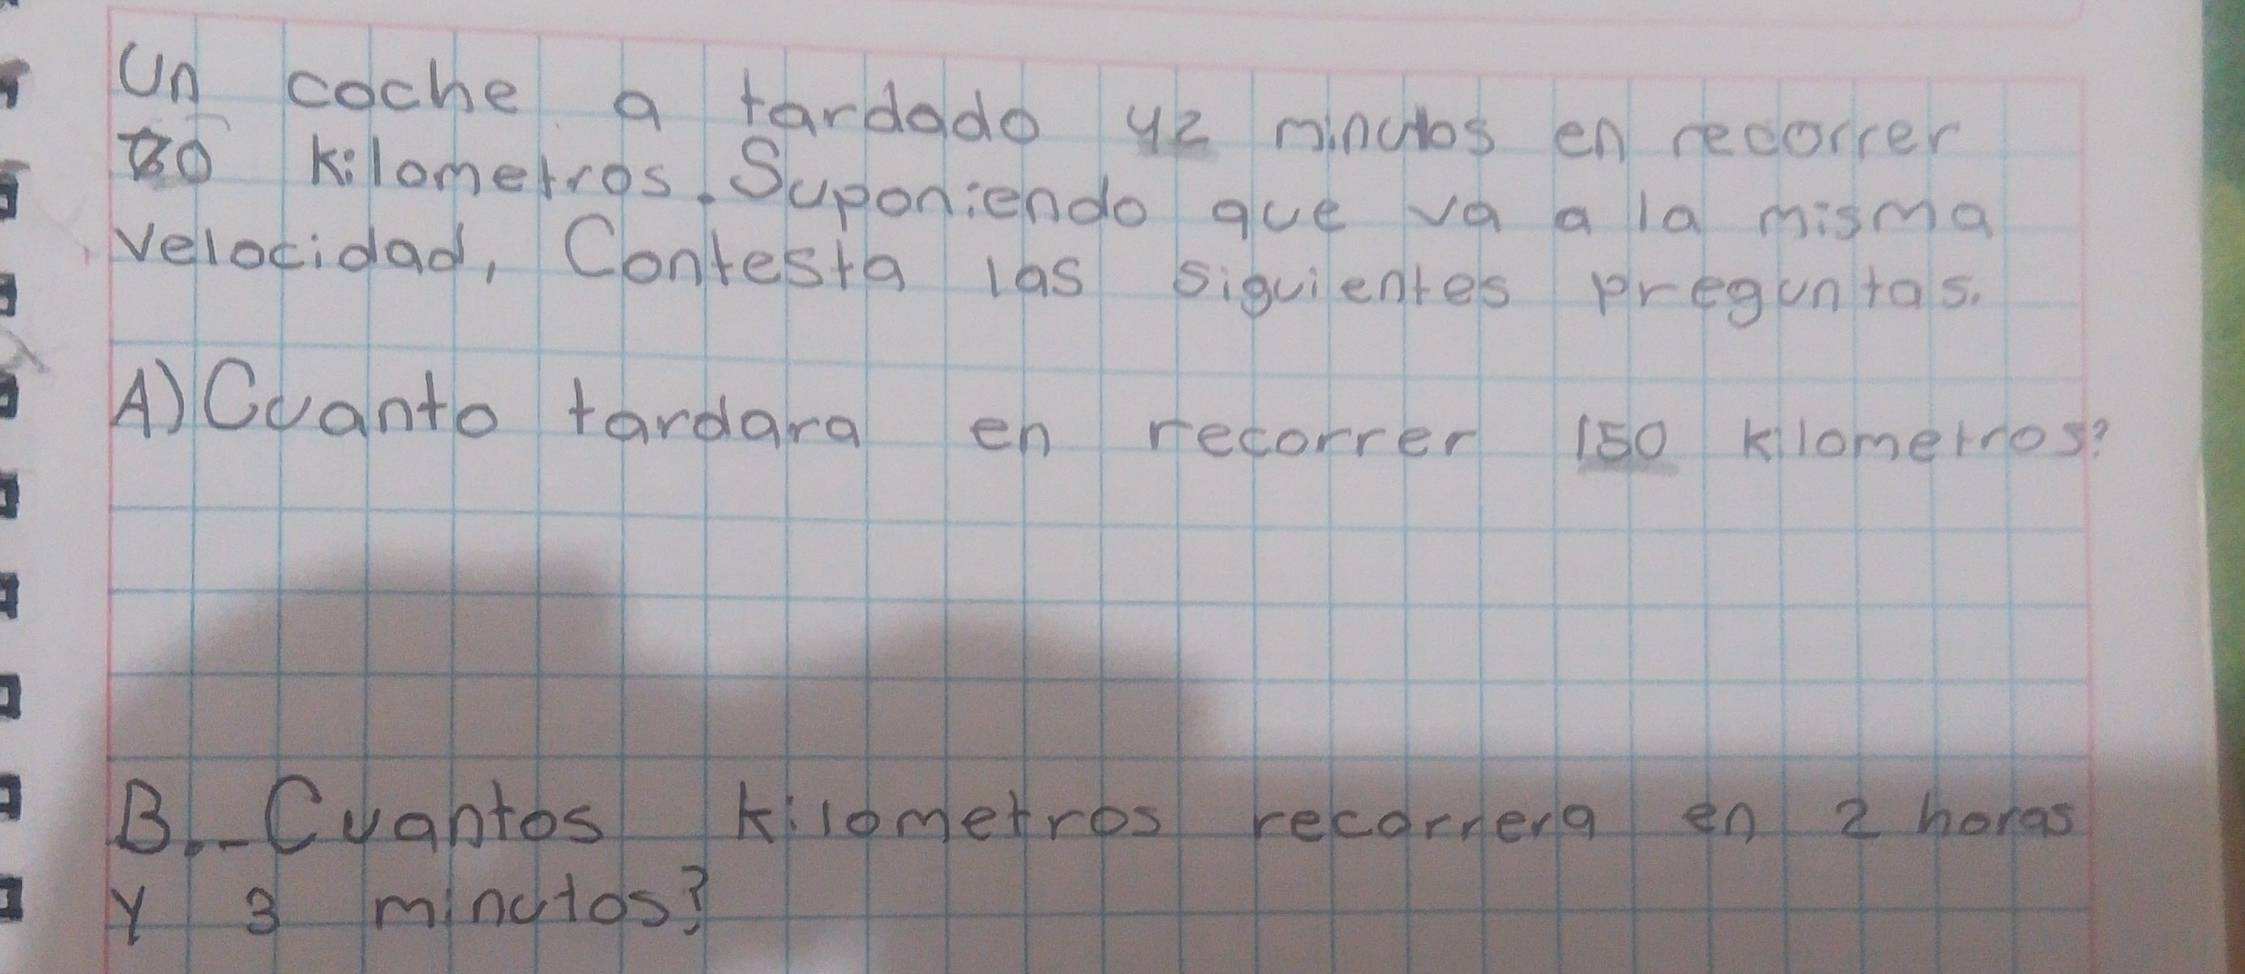 Un coche a tardado 42 minutos en recorrer
kilometros. Suponiendo que va a la misma
velocidad, Contesta las siguientes preguntas.
A) Cuanto tardara en recorrer 150 kilometros?
B.- Cuantos kilometros recorrera en 2 horas
y 3 minutos?